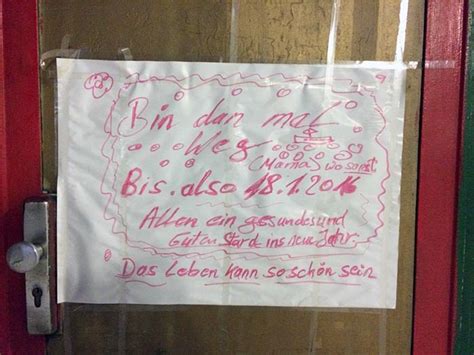 Bin dan mal
Weg
(Mama) wo sonst
Bis. also 18.1.2016
Allen ein gesundes und
Guten Stard ins neue Jahr.
Das Leben kann so schön sein